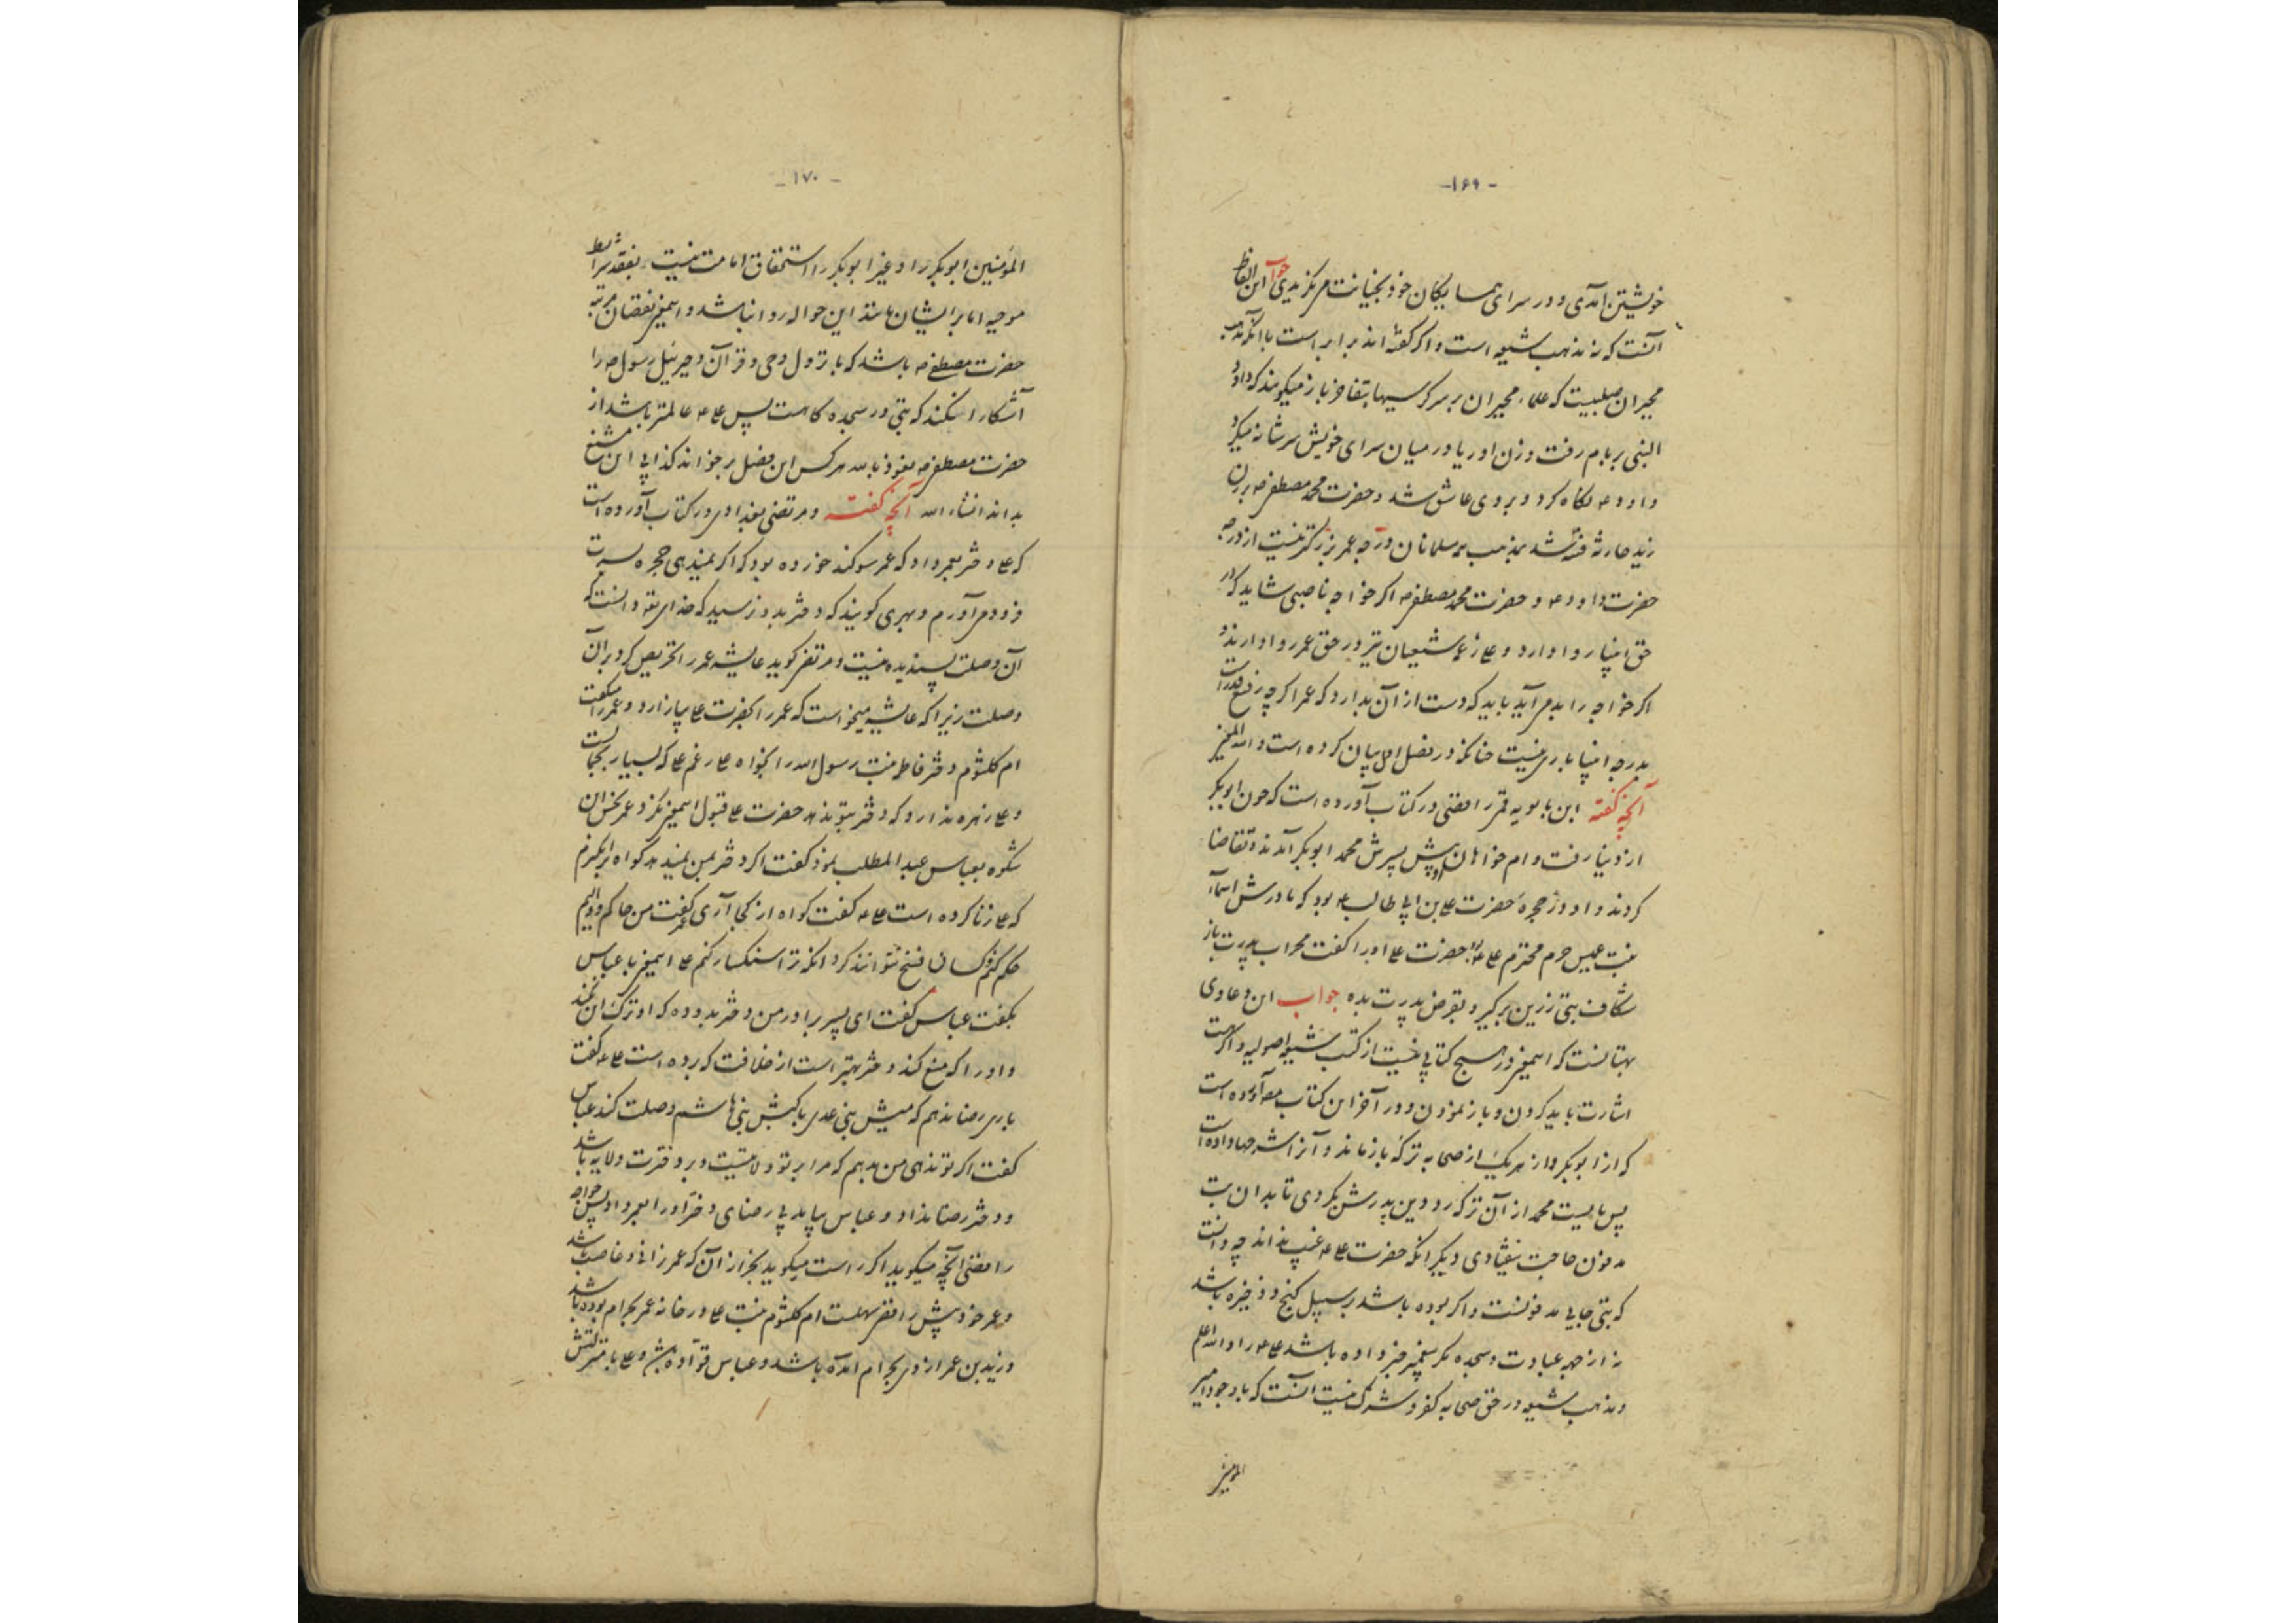 -۱۶۹-
خویشتن آمدی و در سرای همسایگان خود بخیانت مر نگزیدی جواب این الفاظ
آنست که نه مذهب شیعه است و اگر گفته‌اند برابر است با آنکه مذهب
مجبران صلبیست که علماء مجبران بر سر کرسیها بتفاخر باز میگویند که داود
النبی بر بام رفت و زن اوریا در میان سرای خویش سر شانه میکرد
داود ع نگاه کرد و بر وی عاشق شد و حضرت محمد مصطفی ص بر زن
زید حارثه فتنه شد بمذهب همه مسلمانان درجه عمر بزرگتر نیست از درجه
حضرت داود ع و حضرت محمد مصطفی ص اگر خواجه ناصبی شاید که در
حق انبیا روا دارد و علی زعمه شیعیان نیز در حق عمر روا دارند و
اگر خواجه را بد می‌آید باید که دست از آن بدارد که عمر اگر چه رفیع قدر است
بدرجه انبیا باری نیست چنانکه در فصل اول بیان کرده است و الله المعین
آنچه گفته ابن بابویه قمی رافضی در کتاب آورده است که چون ابوبکر
از دنیا رفت وام خواهان او پیش پسرش محمد ابوبکر آمدند و تقاضا
کردند و او در حجره حضرت علی بن ابی طالب ع بود که مادرش اسماء
بنت عمیس حرم محترم علی ع بود حضرت علی او را گفت محراب پدرت باز
شکاف بتی زرین برگیر و بقرض پدرت بده جواب این دعاوی
بهتانست که اینمعنی در هیچ کتابی نیست از کتب شیعه اصولیه و اگر هست
اشارت باید کردن و باز نمودن و در آخر این کتاب مصنف آورده است
که از ابوبکر و از هر یک از صحابه ترکه باز ماند و آنرا شرحها داده است
پس بایست محمد از آن ترکه رد دین پدرش بکردی تا بدان بت
مدفون حاجت نیفتادی دیگر آنکه حضرت علی ع غیب نداند چه دانست
که بتی جایی مدفونست و اگر بوده باشد بر سبیل گنج و ذخیره باشد
نه از جهه عبادت و سجده مگر پیغمبر خبر داده باشد علی ع را و الله اعلم
و مذهب شیعه در حق صحابه کفر و شرک نیست آنست که با وجود امیر
المؤمنین
-۱۷۰-
المؤمنین ابوبکر را و غیر ابوبکر را استحقاق امامت نیست بفقد شرایط
موجبه اما بر ایشان مانند این حواله روا نباشد و اینمعنی نقصان مرتبه
حضرت مصطفی ص باشد که با نزول وحی و قرآن و جبرئیل رسول ص را
آشکارا نکند که بتی در سجده گاهست پس علی ع عالمتر باشد از
حضرت مصطفی ص نعوذ بالله هر کس این فصل بر خواند کذابی این مشنع
بداند انشاء الله آنچه گفته و مرتضی بغدادی در کتاب آورده است
که علی دختر بعمر داد که عمر سوگند خورده بود که اگر بمن ندهی حجره بسرت
فرود می‌آورم و بهری گویند که دختر بدو نرسید که خدای تعالی دانست که
آن وصلت پسندیده نیست و مرتضی گوید عایشه عمر را تحریص کرد بر آن
وصلت زیرا که عایشه میخواست که عمر را بحضرت علی بیازارد و عمر را میگفت
ام کلثوم دختر فاطمه بنت رسول الله را بخواه علی رغم علی که بسیار بجاست
و علی زهره ندارد که دختر بتو ندهد حضرت علی قبول اینمعنی نکرد و عمر بخشم از آن
شکوه بعباس عبد المطلب نمود گفت اگر دختر بمن ندهد گواه برانگیزم
که علی زنا کرده است علی ع گفت گواه از کجا آری عمر گفت من حاکم و والیم
حکم کنم و کسان فسخ نتوانند کرد آنگه ترا سنگسار کنم علی اینمعنی با عباس
بگفت عباس گفت ای پسر برادر من دختر بدو ده که او ترک آن نکند
و او را که منع کند دختر بهتر است از خلافت که برده است علی ع گفت
باری رضا ندهم که میش بنی عدی با کبش بنی هاشم وصلت کند عباس
گفت اگر تو ندهی من بدهم که مرا بر تو ولایتیست و بر دخترت ولایه باشد
و دختر رضا نداد و عباس بیامد بی رضای دختر او را بعمر داد پس خواجه
رافضی آنچه میگوید اگر راست میگوید بجز از آن که عمر زانی و غاصب باشد
و عمر خود پیش رافضی سهلست ام کلثوم بنت علی در خانه عمر بحرام بوده باشد
و زید بن عمر از وی بحرام آمده باشد و عباس قواده باشد و علی با منزلتش